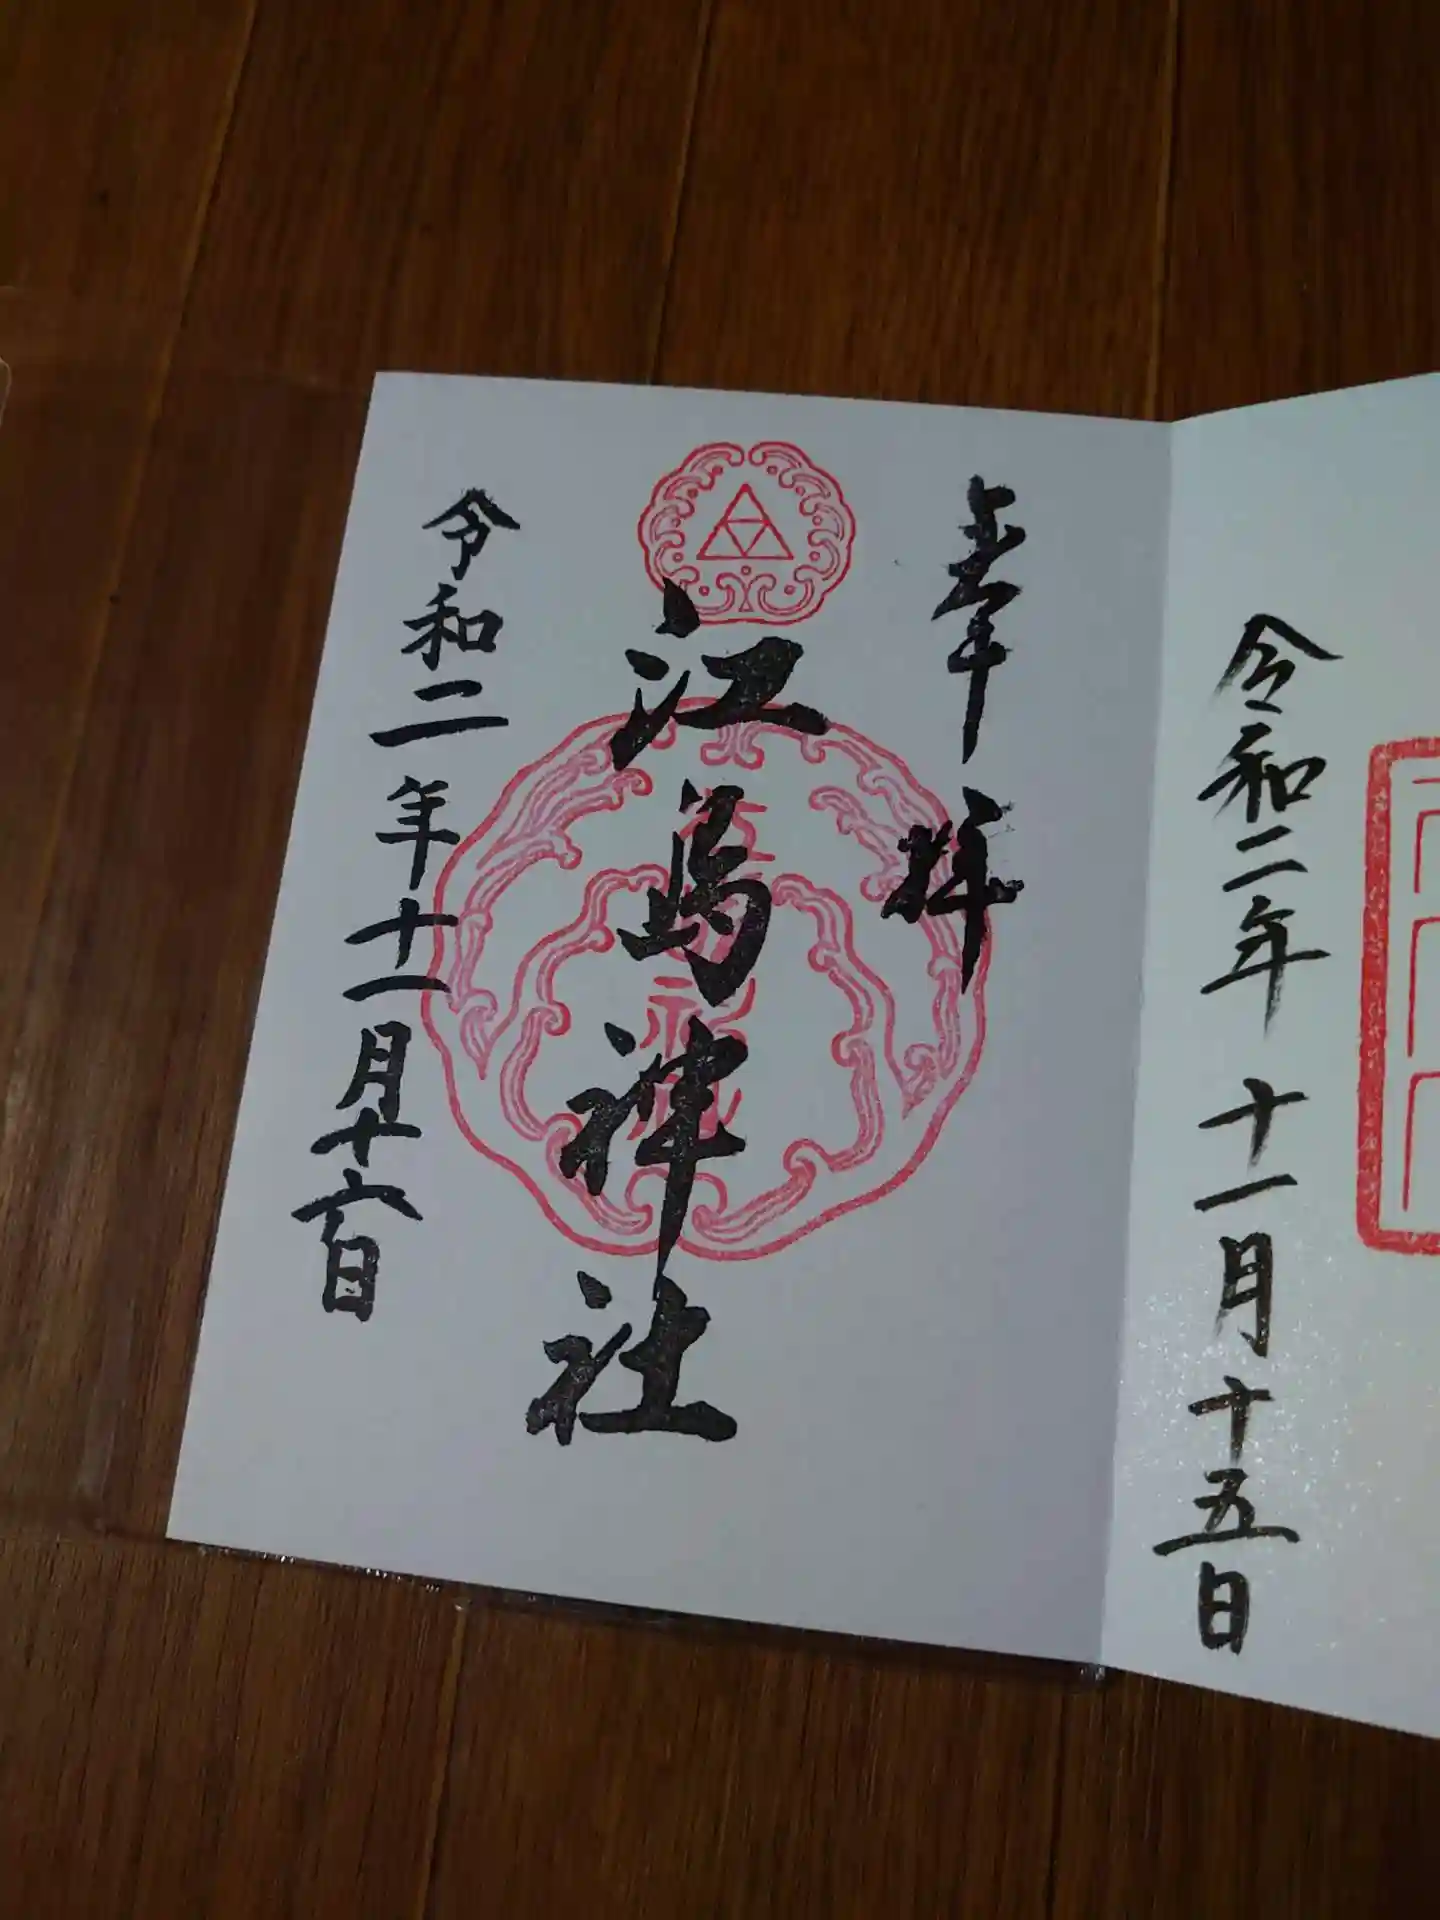 令和二年十一月十五日
奉拝
江島神社
令和二年十一月十六日